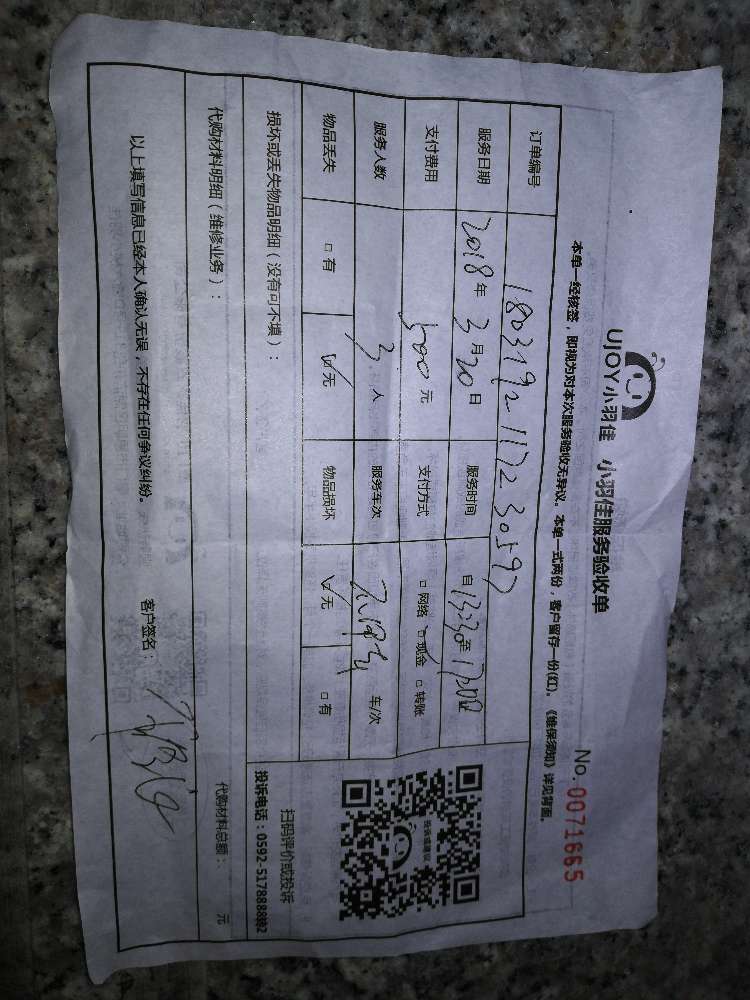 UJOY小羽佳 小羽佳服务验收单
No.0071665
本单一经核签，即视为对本次服务验收无异议。本单一式两份，客户留存一份(红)。《维保须知》详见背面。
订单编号 180319211723059
服务日期 2018年3月20日 服务时间 自13:30至17:30止
支付费用 500元 支付方式 □网络 ☑现金 □转账
服务人数 3人 服务车次 车/次
物品丢失 □有 ☑无 物品损坏 ☑无 □有
损坏或丢失物品明细（没有可不填）：
扫码评价或投诉
投诉电话：0592-5178888转2
代购材料明细（维修业务）：
代购材料总额： 元
以上填写信息已经本人确认无误，不存在任何争议纠纷。
客户签名：